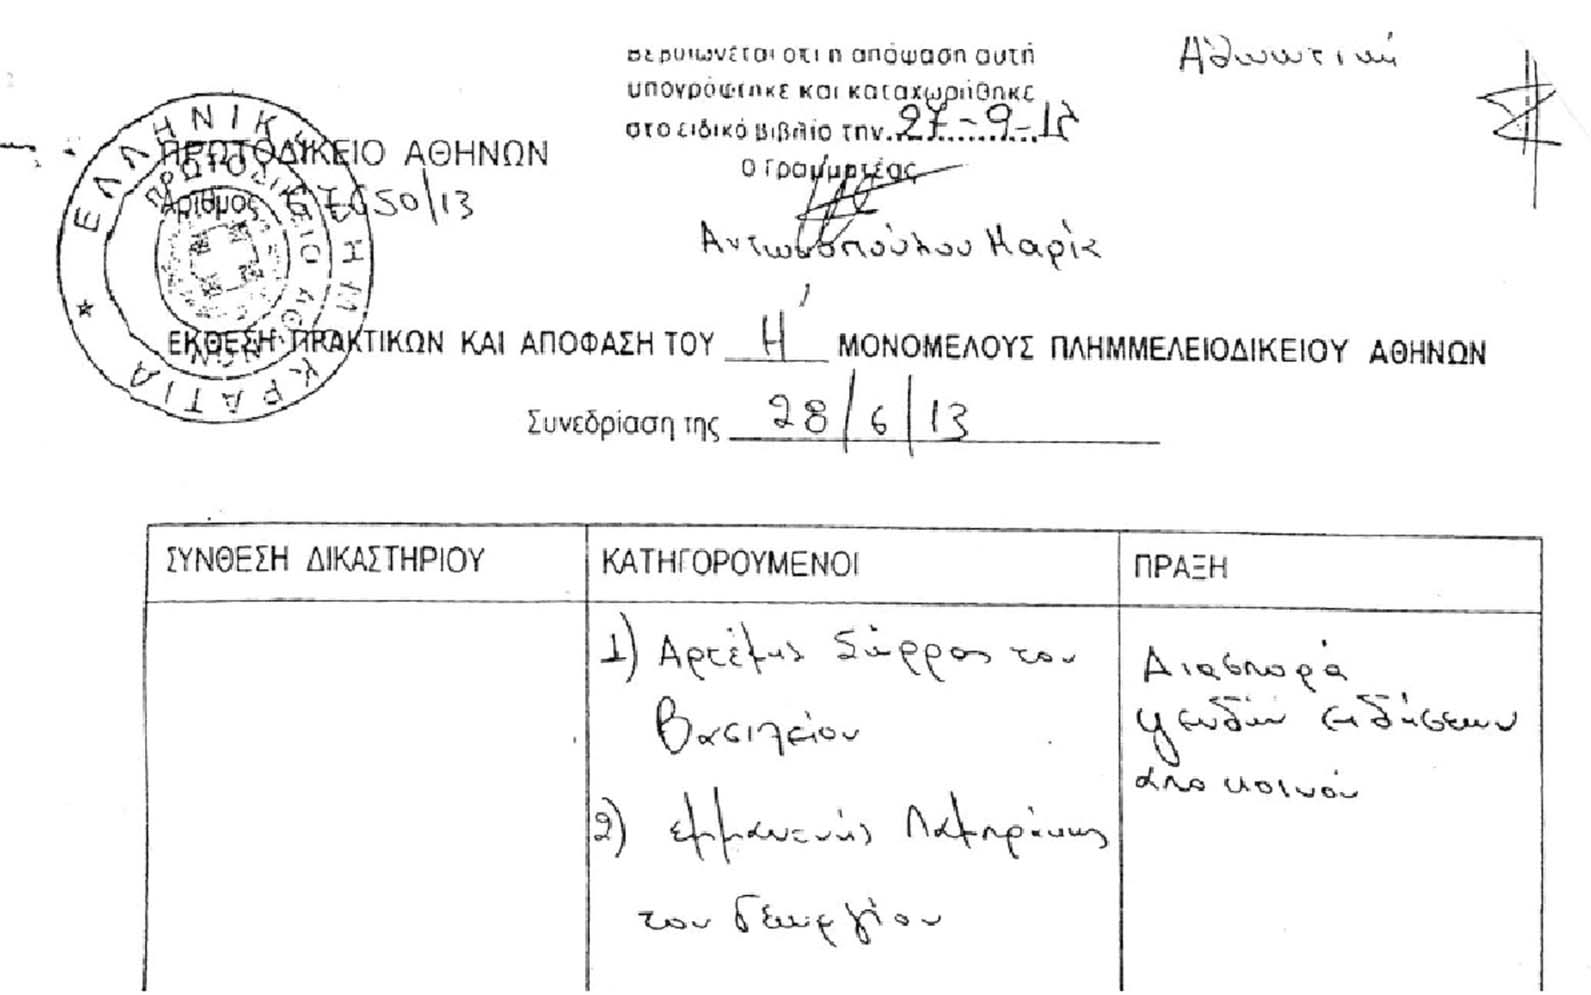 Βεβαιώνεται οτι η απόφαση αυτή
υπογράφτηκε και καταχωρήθηκε
στο ειδικό βιβλίο την 27-9-
Ο Γραμματέας
Αθωωτική
ΠΡΩΤΟΔΙΚΕΙΟ ΑΘΗΝΩΝ
Αριθμος /13
Αντωνοπούλου Μαρία
ΕΛΛΗΝΙΚΗ ΔΗΜΟΚΡΑΤΙΑ
ΠΡΩΤΟΔΙΚΕΙΟ ΑΘΗΝΩΝ
ΕΚΘΕΣΗ ΠΡΑΚΤΙΚΩΝ ΚΑΙ ΑΠΟΦΑΣΗ ΤΟΥ Η' ΜΟΝΟΜΕΛΟΥΣ ΠΛΗΜΜΕΛΕΙΟΔΙΚΕΙΟΥ ΑΘΗΝΩΝ
Συνεδρίαση της 28/6/13
ΣΥΝΘΕΣΗ ΔΙΚΑΣΤΗΡΙΟΥ
ΚΑΤΗΓΟΡΟΥΜΕΝΟΙ
ΠΡΑΞΗ
1) Αρτέμης Σώρρας του
Βασιλείου
2) Εμμανουήλ Λαμπράκης
του Γεωργίου
Διασπορά
ψευδών ειδήσεων
από κοινού